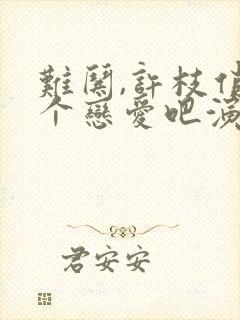 難關,許枝俏
个戀愛吧演
君安安